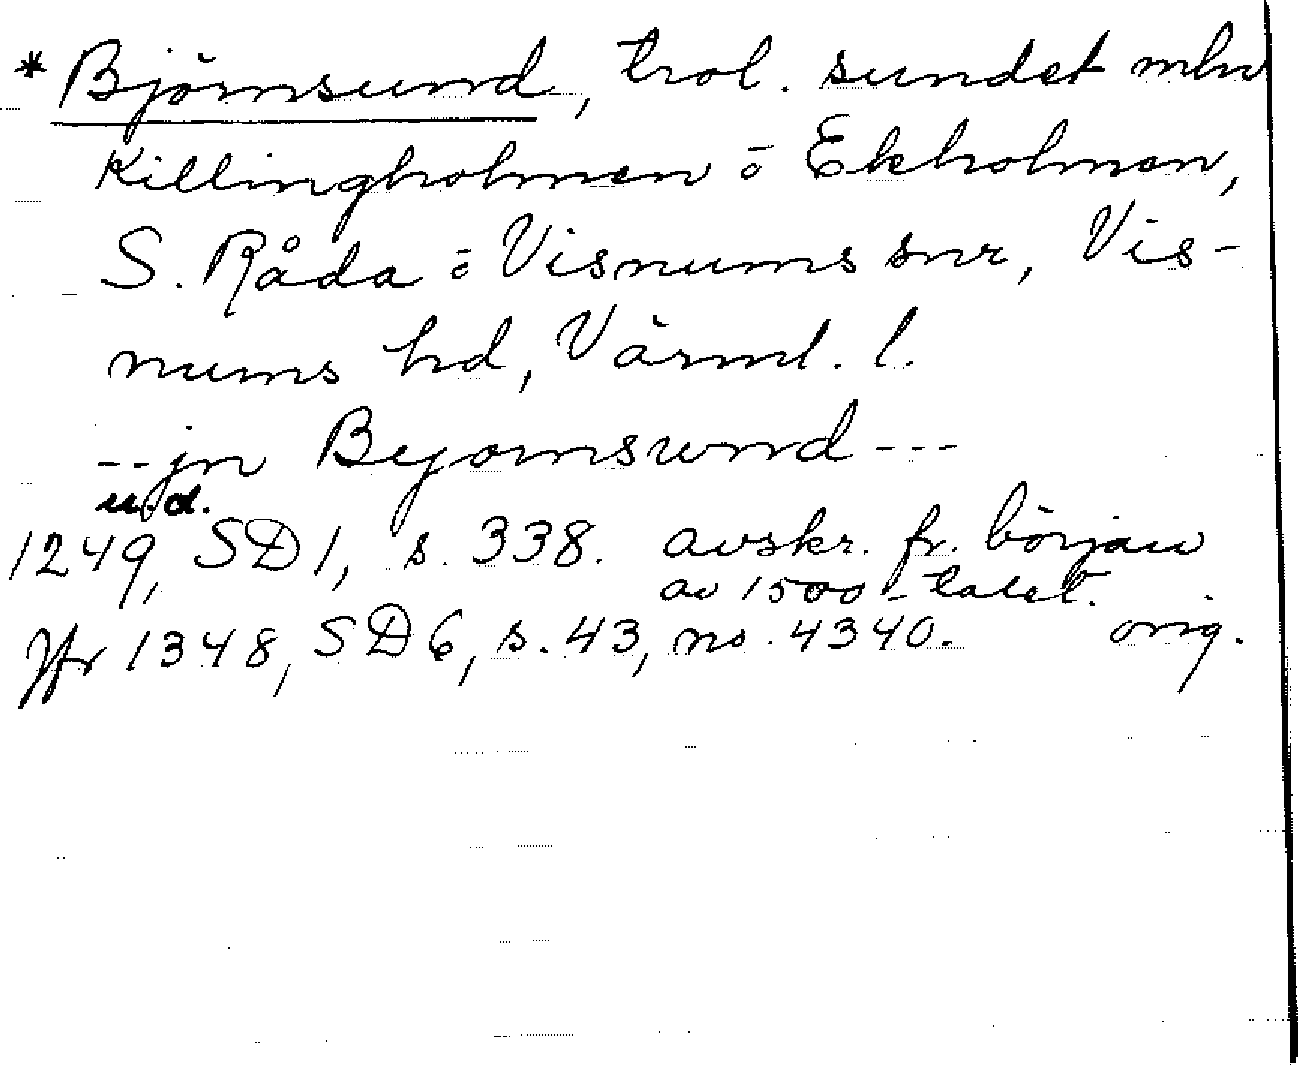 * Björnsund, trol. sundet mln
Killingholmen ō Ekholmen,
S. Råda ō Visnums snr, Vis-
nums hd, Värml. l.
--jn Beyornsund ---
u.d.
1249, SD 1, s. 338. avskr. fr. början
av 1500-talet.
Jfr 1348, SD 6, s. 43, no. 4340. orig.